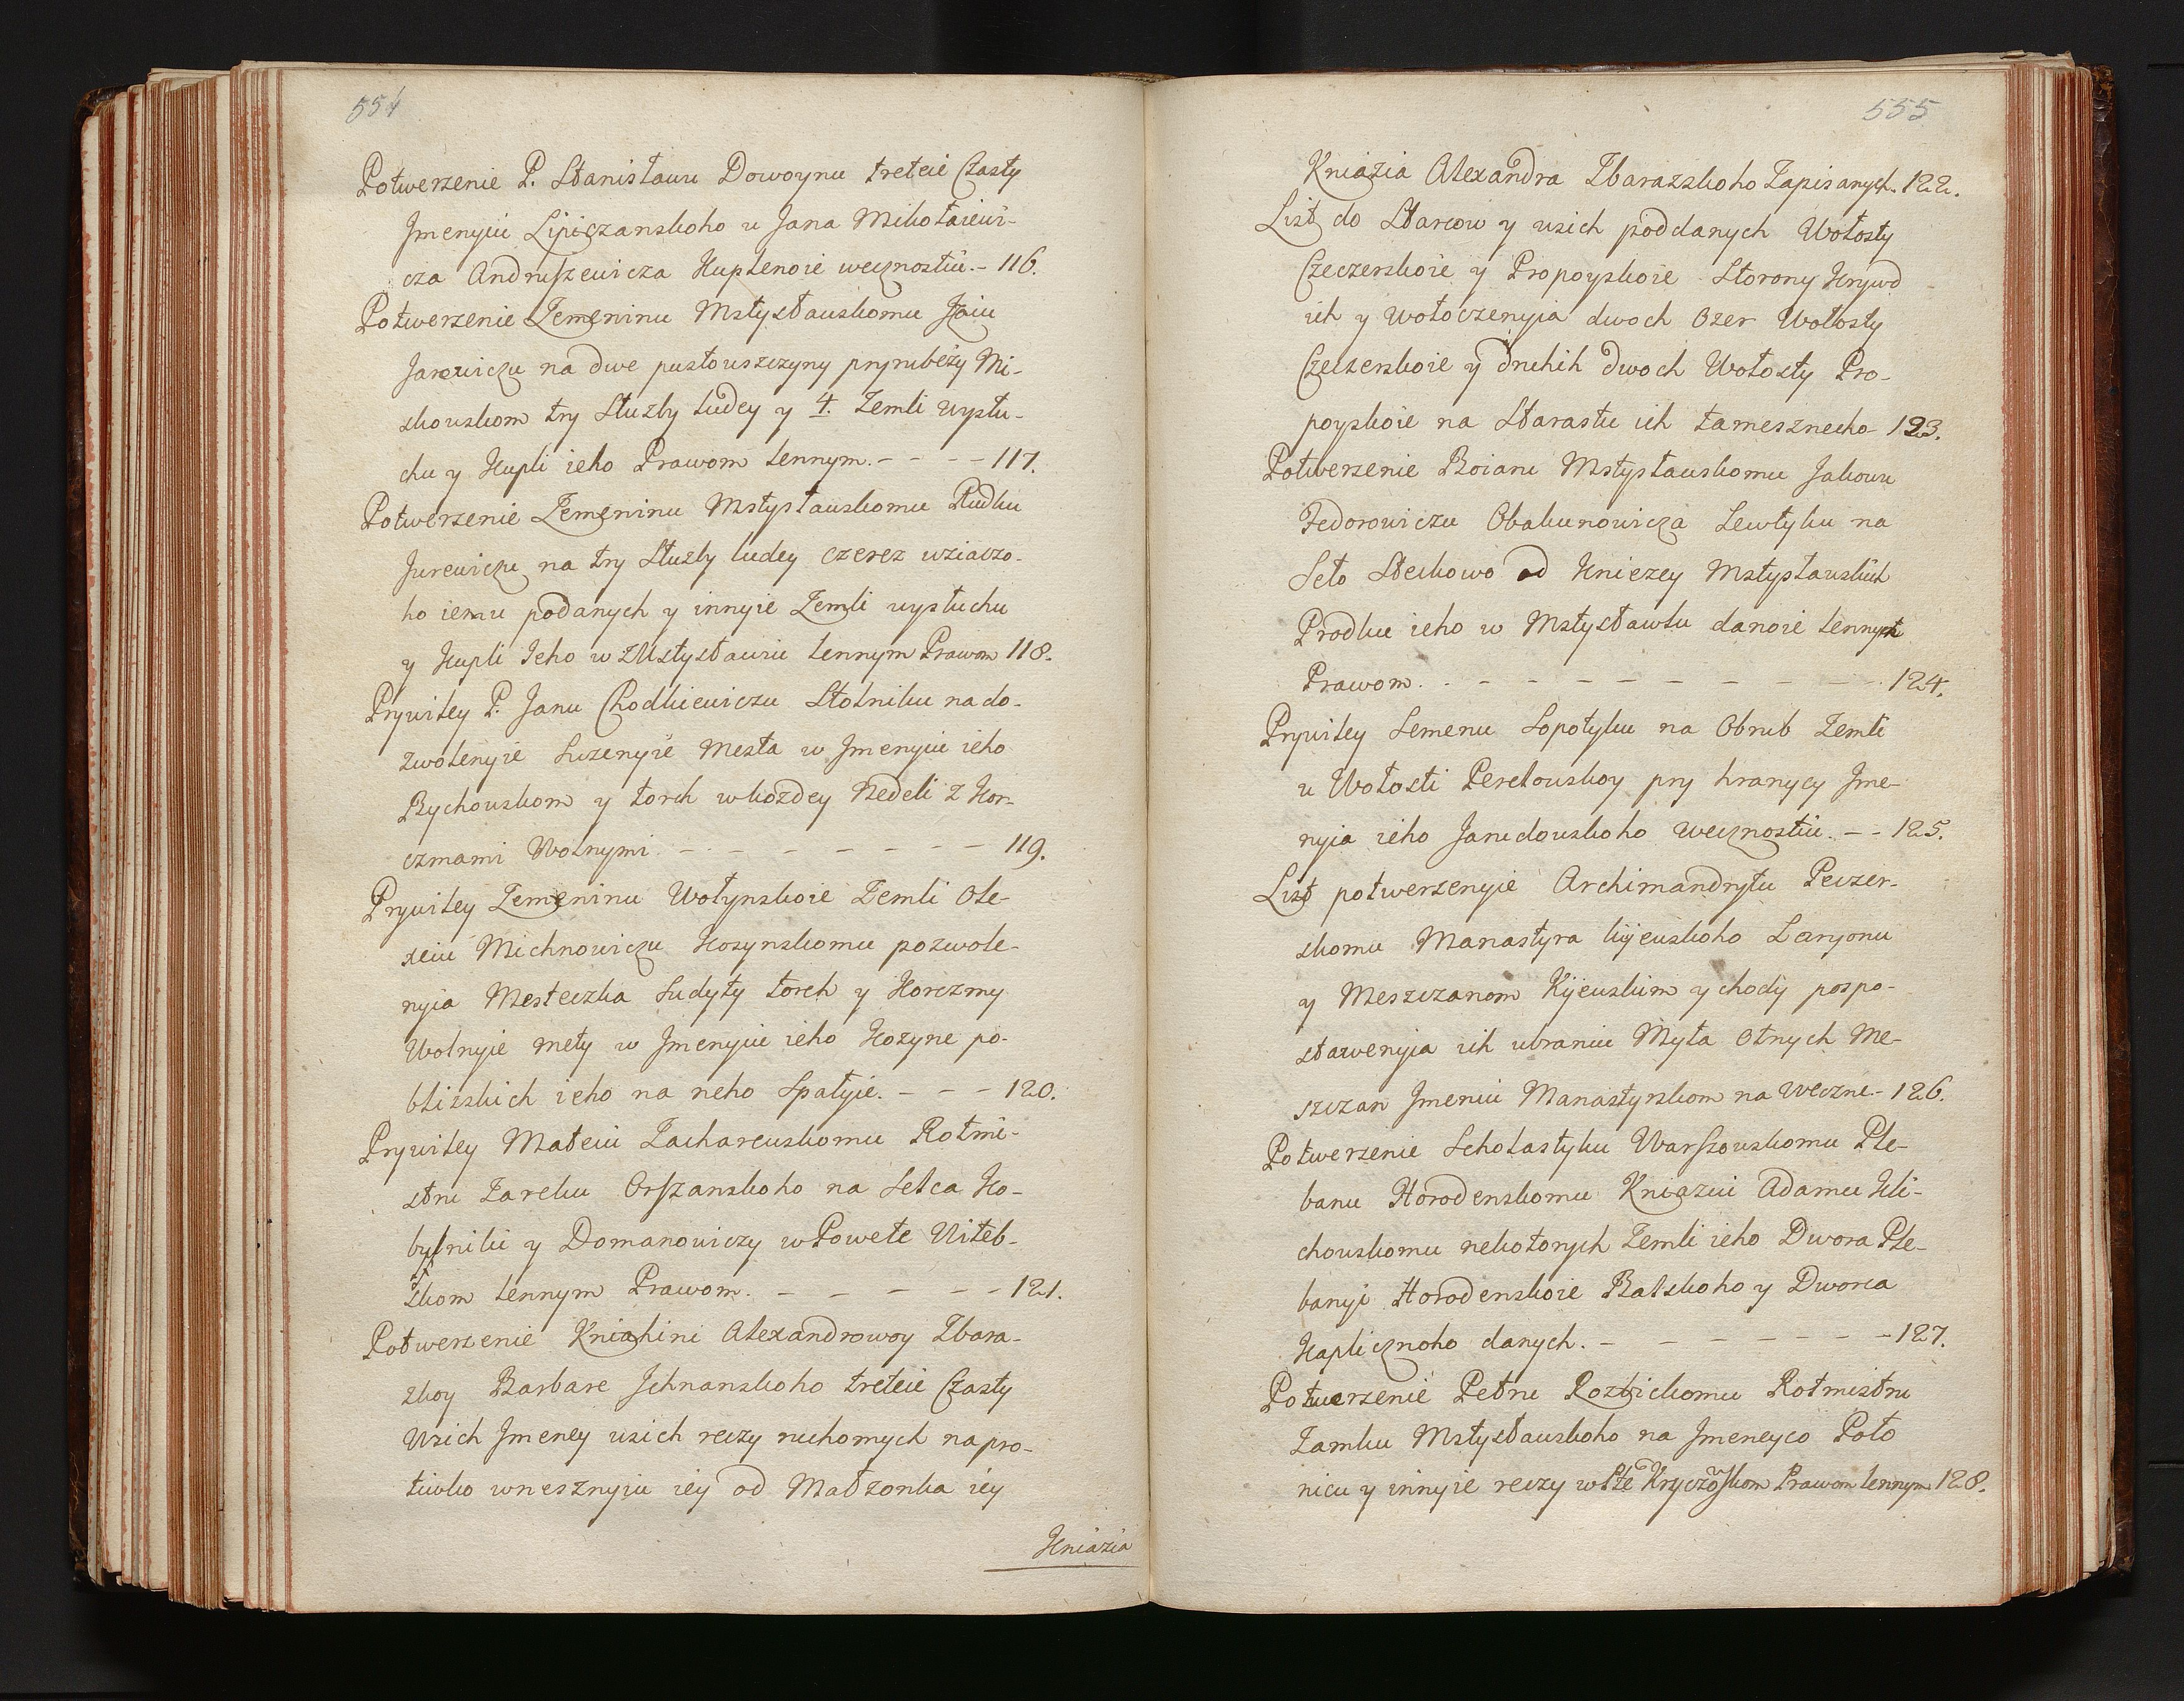 554
Potwerzenie P. Stanisławu Dowoynu treteie Części
Jmenyiu Lipiczanskoho u Jana Mikołaiewi-
cza Andruszewicza Kuplenoie wecznostiu. - 116.
Potwerzenie Zemeninu Mstysławskomu
Jarowiczu na dwe pustowszczyny pryrubeży Mi-
skowskom try Służby ludey y 4. Zemli wysłu-
chu y Kupli ieho Prawom lennym. - - - - 117.
Potwerzenie Zemeninu Mstysławskomu Rudku
Jurewiczu na try Służby ludey czerez wziaczo-
ho iemu podanych y innyie Zemli wysłuchu
y Kupli Jeho w Mstysławiu lennym Prawom 118.
Prywiley P. Janu Chodkiewiczu Stolniku na do-
zwolenyie Sużenyie Mesta w Jmenyiu ieho
Bychowskom y torch w kożdey Nedeli z Kor-
czmami Wolnymi - - - - - - - 119.
Prywiley Zemeninu Wołynskoie Zemli Ole-
xeiu Michnowiczu Kozynskomu pozwole-
nyia Mesteczka Sudyty torch y Korczmy
Wolnyie mety w Jmenyiu ieho Kozyne po-
bliżskich ieho na neho Spałyie. - - - 120.
Prywiley Mateiu Zacharewskomu Rotmi-
stru Zamku Orszanskoho na Selca Ko-
bylniki y Domanowiczy w Powete Witeb-
skom lennym Prawom. - - - - - 121.
Potwerzenie Kniahini Alexandrowoy Zbara-
zkoy Barbare treteie Części
Wsich Jmeney wsich reczy ruchomych na pro-
tiwko wnesznyiu iey od Małzonka iey
Kniazia
555
Kniazia Alexandra Zbarazskoho Zapisanych. 122.
List do Starcow y wsich poddanych Wołosty
Czeczerskoie y Propoyskoie Storony Krywd
ich y Wołoczenyia dwoch Ozer Wołosty
Czeczerskoie y druhih dwoch Wołosty Pro-
poyskoie na Starastu ich tamesznecho 123.
Potwerzenie Boianu Mstysławskomu Jakowu
Fedorowiczu Obakunowicza Lewtyku na
Seło Steckowo od Kniezey Mstysławskich
Prodku ieho w Mstysławlu danoie lennym
Prawom. - - - - - - - - - - 124.
Prywiley Semenu Sopotyku na Obrub Zemli
u Wołosti Perełowskoy pry hranycy Jme-
nyia ieho Janidowskoho wecznostiu. - - 125.
List potwerzenyie Archimandrytu Peczer-
skomu Manastyra kijewskoho Laryonu
y Meszczanom Kijewskim y chody pospo-
stawenyia ich ubraniu Myta Otnych Me-
szczan Jmeniu Manastyrskom na Weczne - 126.
Potwerzenie Scholastyku Warszowskomu Ple-
banu Horodenskomu Kniaziu Adamu Kli-
chowskomu nekotorych Zemli ieho Dwora Ple-
banyi Horodenskoie Balskoho y Dworca
Kaplicznoho danych. - - - - - - - 127.
Potwerzenie Petru Rotmistru
Zamku Mstysławskoho na Jmeneyco Poło
nicu y innyie reczy w Pte Kryczowskom Prawom lennym 128.